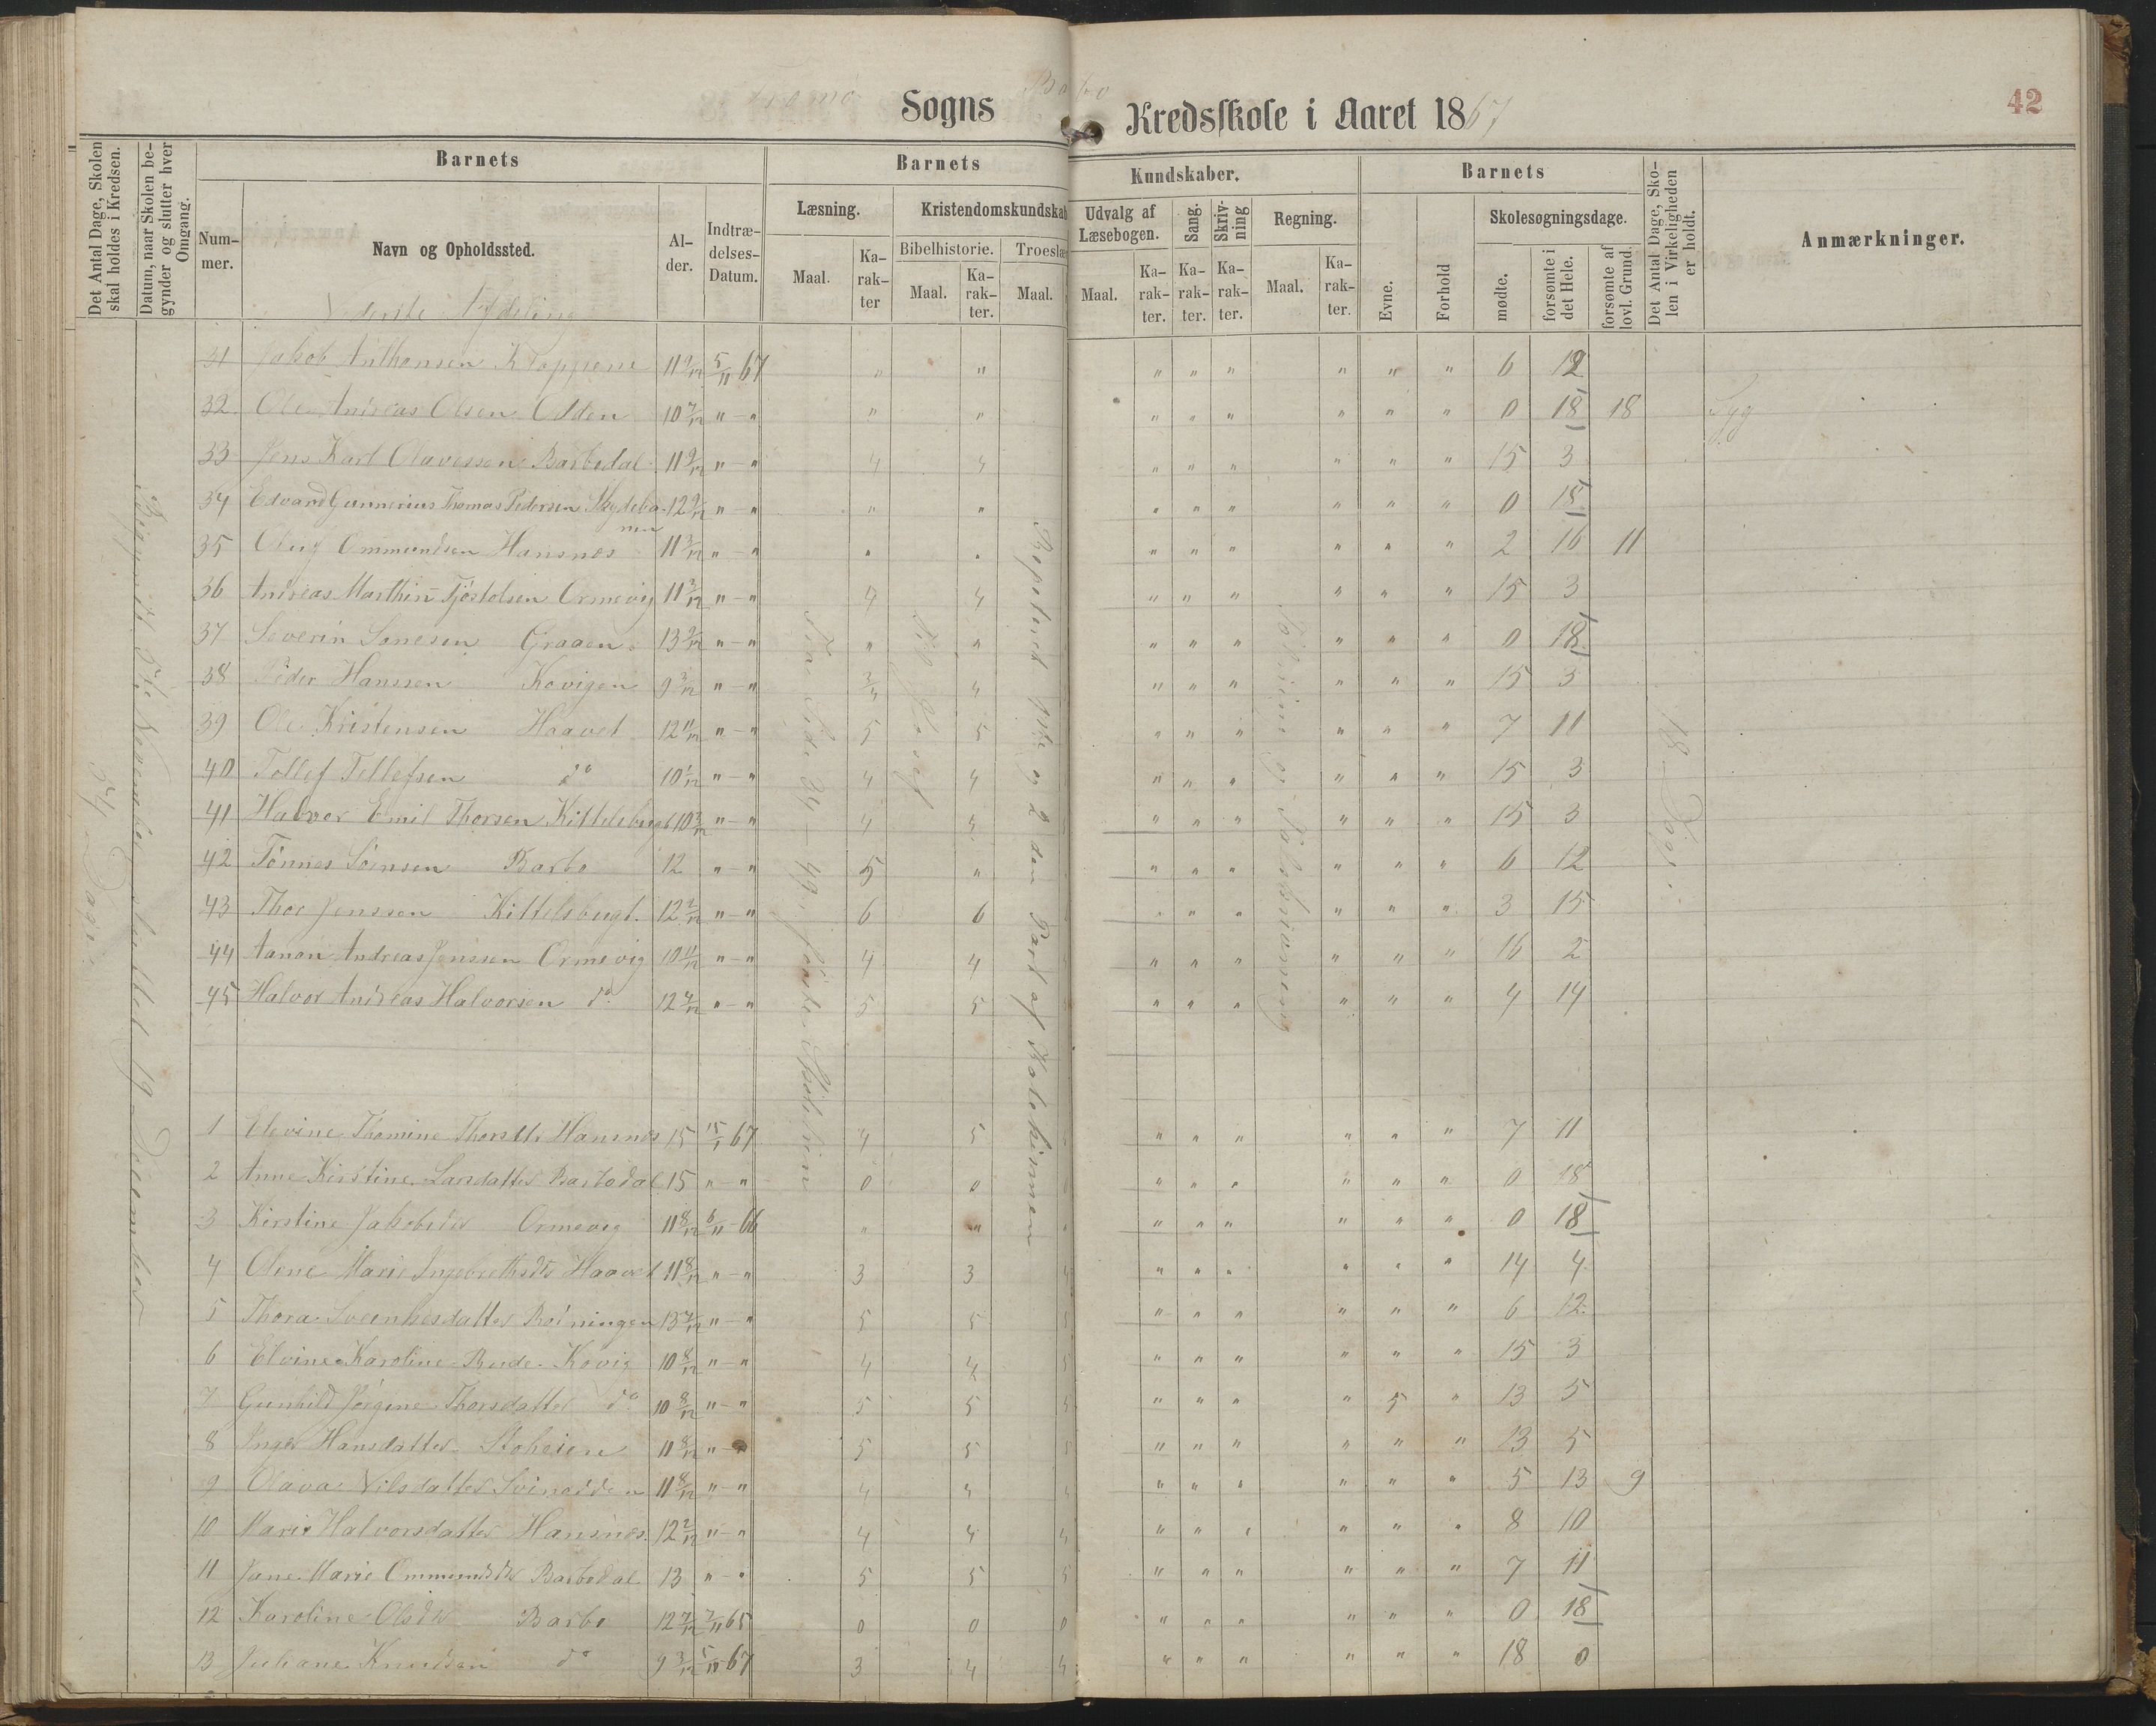 Tromø Sogns Barbo Kredsskole i Aaret 1867
42
Det Antal Dage, Skolen skal holdes i Kredsen.
Datum, naar Skolen begynder og slutter hver Omgang.
Barnets
Nummer.
Navn og Opholdssted.
Alder.
Indtrædelses-Datum.
Barnets Kundskaber.
Læsning.
Maal.
Karakter
Kristendomskundskab
Bibelhistorie.
Maal.
Karakter.
Troeslær
Maal.
Udvalg af Læsebogen.
Maal.
Karakter.
Sang.
Karakter.
Skrivning
Karakter.
Regning.
Maal.
Karakter.
Barnets
Evne.
Forhold
Skolesøgningsdage.
mødte.
forsømte i det Hele.
forsømte af lovl. Grund.
Det Antal Dage, Skolen i Virkeligheden er holdt.
Anmærkninger.
Nederste Afdeling
31 Jakob Anthonsen Kloppene 11 9/12 5/11 67 " " " " " " " " 6 12
32 Ole Andreas Olsen Odden 10 7/12 " - " " " " " " " " " 0 18 18 Syg
33 Jens Karl Olavessen Barbodal 11 9/12 " - " 4 4 " " " " " " 15 3
34 Edvard Gunnerius Thomas Pedersen Skydebanen 12 9/12 " - " " " " " " " " " 0 18
35 Oluf Ommundsen Hansnes 11 3/12 " - " " " " " " " " " 2 16 11
36 Andreas Marthin Tjöstolsen Ormevig 11 3/12 " - " 4 4 " " " " " " 15 3
37 Severin Sonesen Graaen 13 9/12 " - " " " " " " " " " 0 18
38 Peder Hanssen Kovigen 9 3/12 " - " 3/4 4 " " " " " " 15 3
39 Ole Kristensen Haavet 12 11/12 " - " 5 5 " " " " " " 7 11
40 Tollef Tellefsen do 10 1/12 " - " 4 4 " " " " " " 15 3
41 Halvor Emil Thorsen Kittelsbugt 10 3/12 " - " 4 4 " " " " " " 15 3
42 Tönnes Sörnsen Barbo 12 " - " 5 " " " " " " " 6 12
43 Thor Jenssen Kittelsbugt. 12 2/12 " - " 6 6 " " " " " " 3 15
44 Aanon Andreas Jenssen Ormevig 10 11/12 " - " 4 4 " " " " " " 16 2
45 Halvor Andreas Halvorsen do 12 4/12 " - " 5 5 " " " " " " 4 14
1 Elevine Thomine Thorsdtr Hansnes 15 15/1 67 4 5 " " " " " " 7 11
2 Anne Kirstine Larsdatter Barbodal 15 " - " 0 0 " " " " " " 0 18
3 Kirstine Jakobsdtr Ormevig 11 8/12 6/11 - 66 " " " " " " " " 0 18
4 Olene Marie Ingebrethsdtr Haavet 11 8/12 " - " 3 3 4 " " " " " " 14 4
5 Thora Svenningsdatter 13 7/12 " - " 5 5 5 " " " " " " 6 12
6 Elvine Karoline Bude Kovig 10 8/12 " - " 4 4 5 " " " " " " 15 3
7 Gunhild Jörgine Thorsdatter do 10 8/12 " - " 5 5 5 " " " " 5 " 13 5
8 Inger Hansdatter Stoheien 11 8/12 " - " 5 5 5 " " " " " " 13 5
9 Olava Nilsdatter Svinodden 11 8/12 " - " 4 4 4 " " " " " " 5 13 9
10 Marie Halvorsdatter Hansnes. 12 2/12 " - " 4 4 4 " " " " " " 8 10
11 Jane Marie Ommundsdtr Barbodal 13 " - " 5 5 5 " " " " " " 7 11
12 Karoline Olsdtr Barbo 12 7/12 7/11 65 0 0 0 " " " " " " 0 18
13 Juliane Knudsen do 9 3/12 5/11 67 3 4 4 " " " " " " 18 0
54 Dage
Begyndt 5te November sluttet 19 December
Side 24 - 49 i förste Afdeling
Til Josef
Repeteret 1ste og 2den Part af Katekismen
18 Dage.